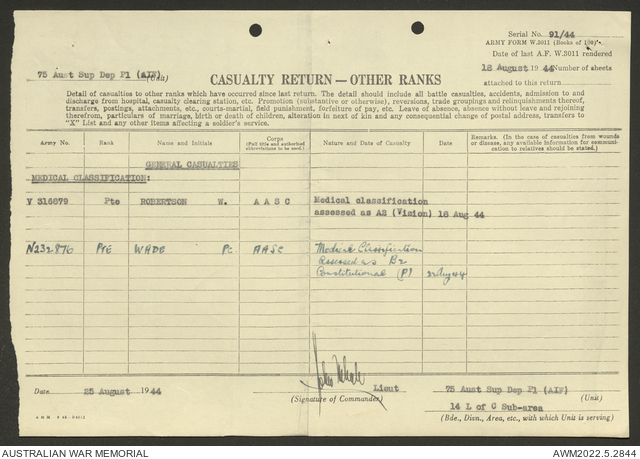 Serial No. 91/44
ARMY FORM W.3011 (Books of 100)
Date of last A.F. W.3011 rendered
75 Aust Sup Dep Pl (AIF) (Unit)
18 August 1944 Number of sheets
attached to this return
CASUALTY RETURN — OTHER RANKS
Detail of casualties to other ranks which have occurred since last return. The detail should include all battle casualties, accidents, admission to and
discharge from hospital, casualty clearing station, etc. Promotion (substantive or otherwise), reversions, trade groupings and relinquishments thereof,
transfers, postings, attachments, etc., courts-martial, field punishment, forfeiture of pay, etc. Leave of absence, absence without leave and rejoining
therefrom, particulars of marriage, birth or death of children, alteration in next of kin and any consequential change of postal address, transfers to
"X" List and any other items affecting a soldier's service.
Army No. Rank Name and Initials Corps (Full title and authorised abbreviations to be used.) Nature and Date of Casualty Date Remarks. (In the case of casualties from wounds or disease, any available information for communication to relatives should be stated.)
GENERAL CASUALTIES
MEDICAL CLASSIFICATION:
V 316879 Pte ROBERTSON W. A A S C Medical classification
assessed as A2 (Vision) 18 Aug 44
N232876 Pte WADE AASC Medical Classification
Assessed as B2
Constitutional (P) Aug 44
Lieut
Date 25 August 1944
(Signature of Commander)
75 Aust Sup Dep Pl (AIF)
(Unit)
14 L of C Sub-area
(Bde., Divn., Area, etc., with which Unit is serving)
AUSTRALIAN WAR MEMORIAL
AWM2022.5.2844